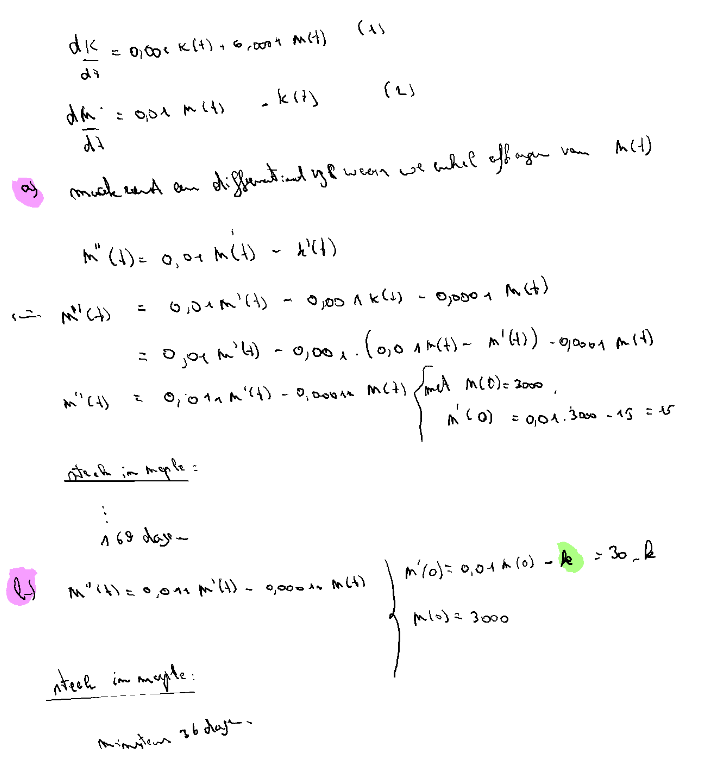 dK/dt = 0,001 K(t) + 0,0001 M(t) (1)
dM/dt = 0,01 M(t) - K(t) (2)
a) maak eerst een differentiaal vgl waarin we enkel afhangen van M(t)
M''(t) = 0,01 M'(t) - k'(t)
M''(t) = 0,01 M'(t) - 0,001 k(t) - 0,0001 M(t)
= 0,01 M'(t) - 0,001 . (0,01 M(t) - M'(t)) - 0,0001 M(t)
M''(t) = 0,011 M'(t) - 0,00011 M(t) { met M(0) = 3000,
M'(0) = 0,01 . 3000 - 15 = 15
steek in maple:
⋮
169 dagen
b) M''(t) = 0,011 M'(t) - 0,00011 M(t) } M'(0) = 0,01 M(0) - k = 30 - k
M(0) = 3000
steek in maple:
minstens 36 dagen.